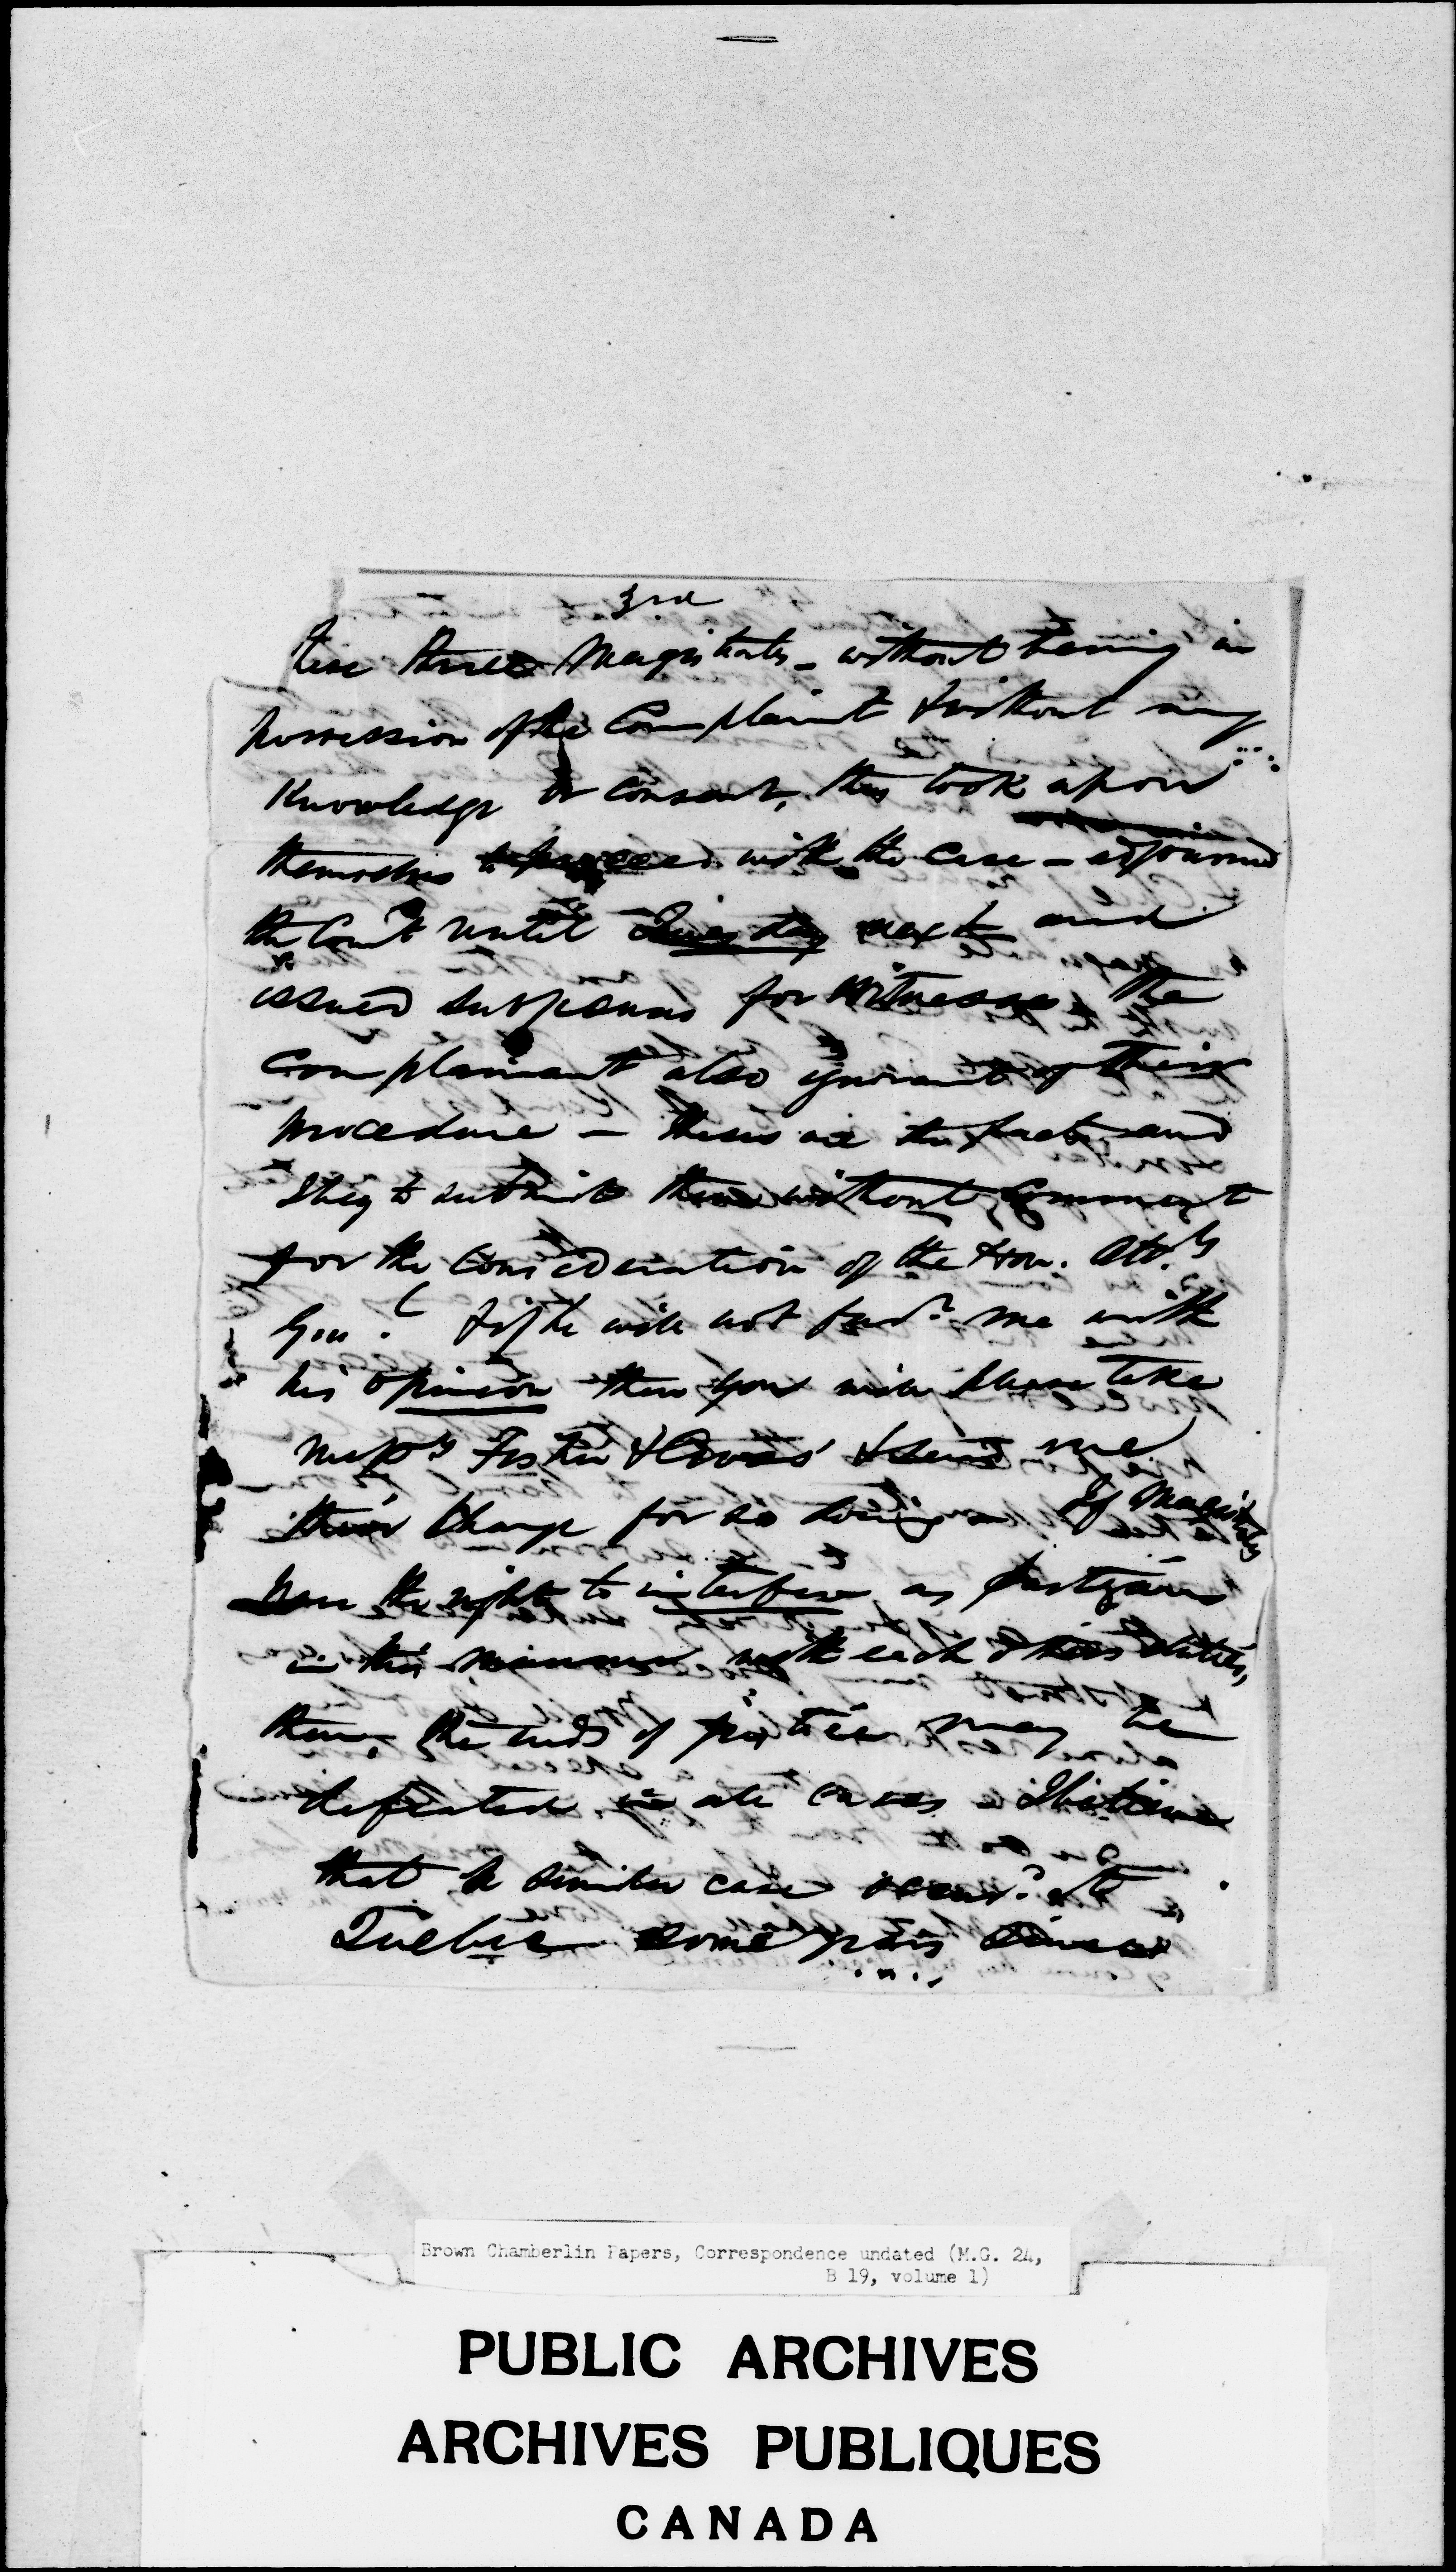 3rd
these three Magistrates – without being in
possession of the Complaint & without my
Knowledge or consent, they took upon
themselves to proceed with the case – adjourned
the Court until Tuesday next and
issued subpoenas for witnesses, the
Complainant also ignorant of their
procedure – these are the facts and
I beg to submit them without comment
for the consideration of the Hon. Atty
Gen.l & if he will not me with
his opinion then you will please take
Foster & & send me
their charge for so doing – If Magistrates
have the right to interfere as partizans
in this manner with each others duties,
then, the ends of justice may be
defeated in all cases – I believe
that a similar case occurd. at
Quebec some years since
Brown Chamberlin Papers, Correspondence undated (M.G. 24,
B 19, volume 1)
PUBLIC ARCHIVES
ARCHIVES PUBLIQUES
CANADA